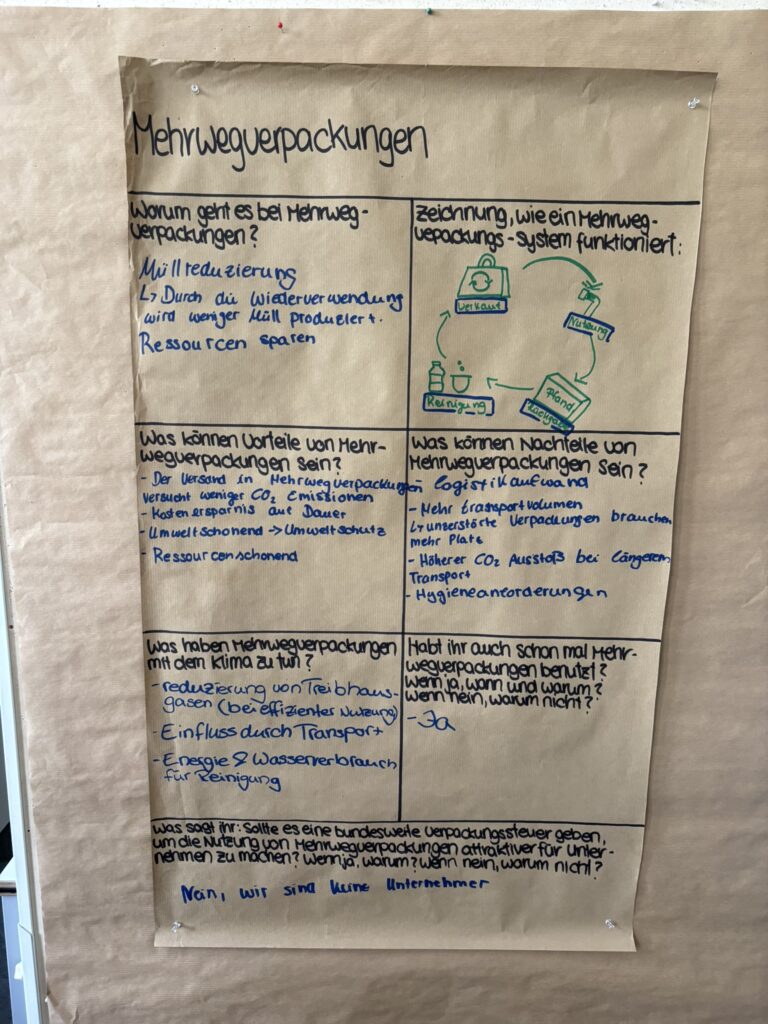 Mehrwegverpackungen
Worum geht es bei Mehrweg-
verpackungen?
Müllreduzierung
↳ Durch die Wiederverwendung
wird weniger Müll produziert.
Ressourcen sparen
Zeichnung, wie ein Mehrweg-
vepackungs-System funktioniert:
Verkauf
Nutzung
Pfand
Rückgabe
Reinigung
Was können Vorteile von Mehr-
wegverpackungen sein?
- Der Versand in Mehrwegverpackungen
versucht weniger CO₂ Emissionen
- Kostenersparnis auf Dauer
- Umweltschonend → Umweltschutz
- Ressourcenschonend
Was können Nachteile von
Mehrwegverpackungen sein?
- Logistikaufwand
- Mehr transportvolumen
↳ unzerstörte Verpackungen brauchen
mehr Platz
- Höherer CO₂ Ausstoß bei längerem
Transport
- Hygieneanforderungen
Was haben Mehrwegverpackungen
mit dem Klima zu tun?
- reduzierung von Treibhaus-
gasen (bei effizienter Nutzung)
- Einfluss durch Transport
- Energie & Wasserverbrauch
für Reinigung
Habt ihr auch schon mal Mehr-
wegverpackungen benutzt?
Wenn ja, wann und warum?
Wenn nein, warum nicht?
- Ja
Was sagt ihr: Sollte es eine bundesweite Verpackungssteuer geben,
um die Nutzung von Mehrwegverpackungen attraktiver für Unter-
nehmen zu machen? Wenn ja, warum? Wenn nein, warum nicht?
Nein, wir sind keine Unternehmer